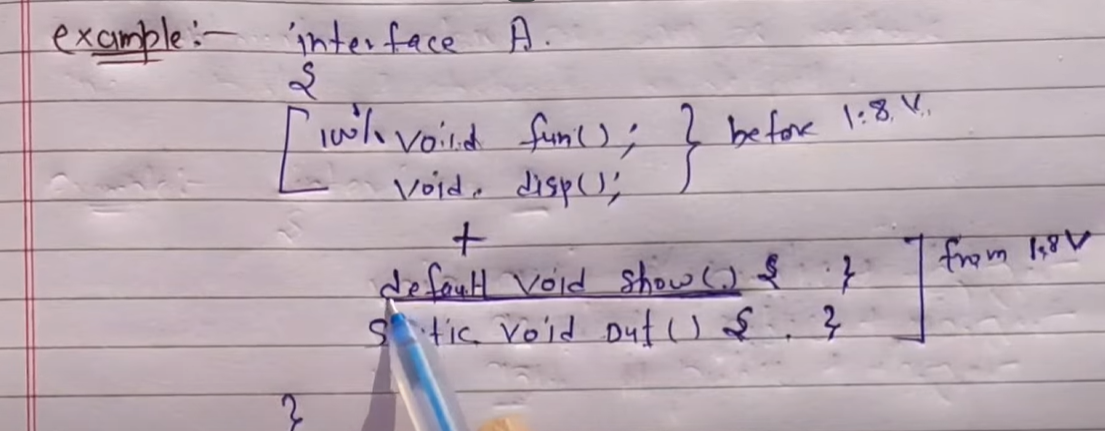 example:- interface A.
{
[ 100% void fun(); } before 1.8 V.
void. disp();
+
default void show() { . } ] from 1.8 V
static void out() { . }
}